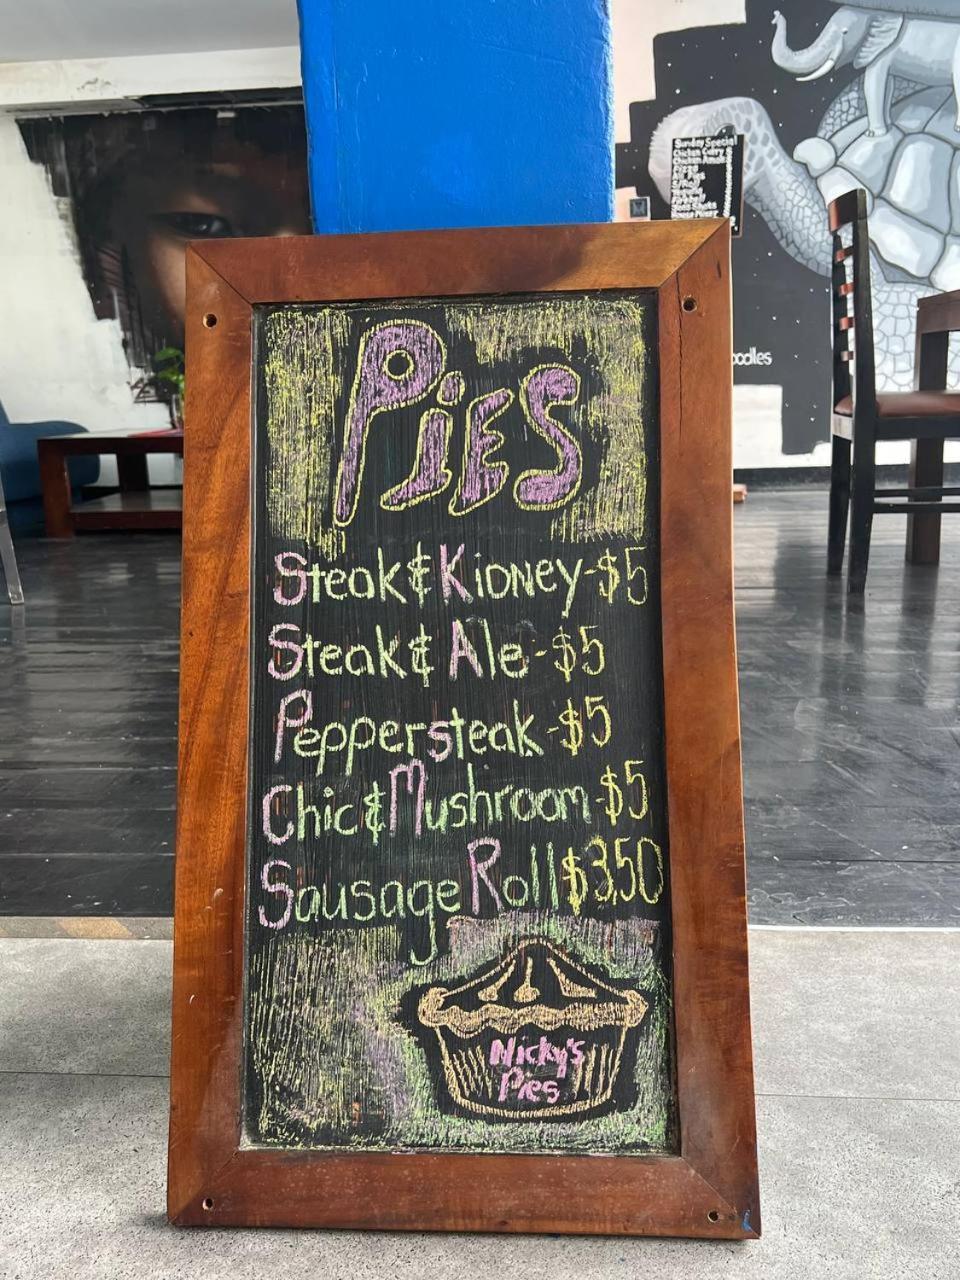 Sunday Special
Chicken Curry $
Chicken Amok
PIES
Steak & Kidney - $5
Steak & Ale - $5
Peppersteak - $5
Chic & Mushroom - $5
Sausage Roll $3.50
Nicky's
Pies